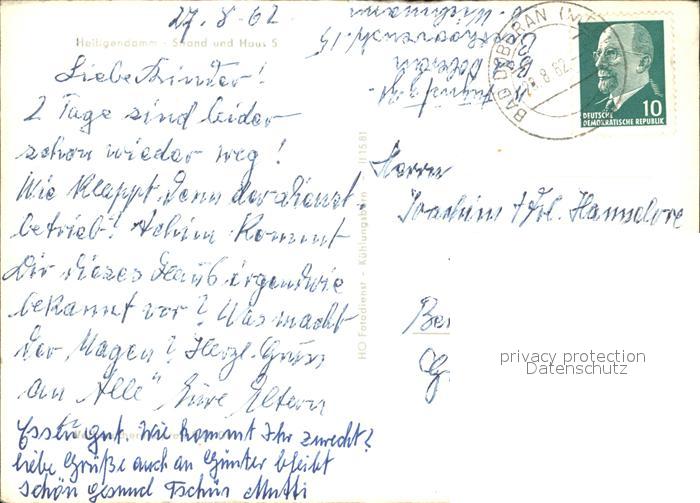 27.8.62
Heiligendamm - Strand und Haus 5
Liebe Kinder!
2 Tage sind leider
schon wieder weg!
Wie klappt denn der Dienst-
betrieb? Achim kommt
Dir dieses Haus irgendwie
bekannt vor? Was macht
der Magen? Herzl. Gruss
an "Alle" Eure Eltern
Essen gut. Wie kommt Ihr zurecht?
liebe Grüße auch an Günter bleibt
schön gesund Tschüs Mutti
HO Fotodienst - Kühlungsborn II 1581
BAD DOBERAN
8.62
10
DEUTSCHE
DEMOKRATISCHE REPUBLIK
Herrn
Joachim + Frl. Hannelore
Be
G.
privacy protection
Datenschutz